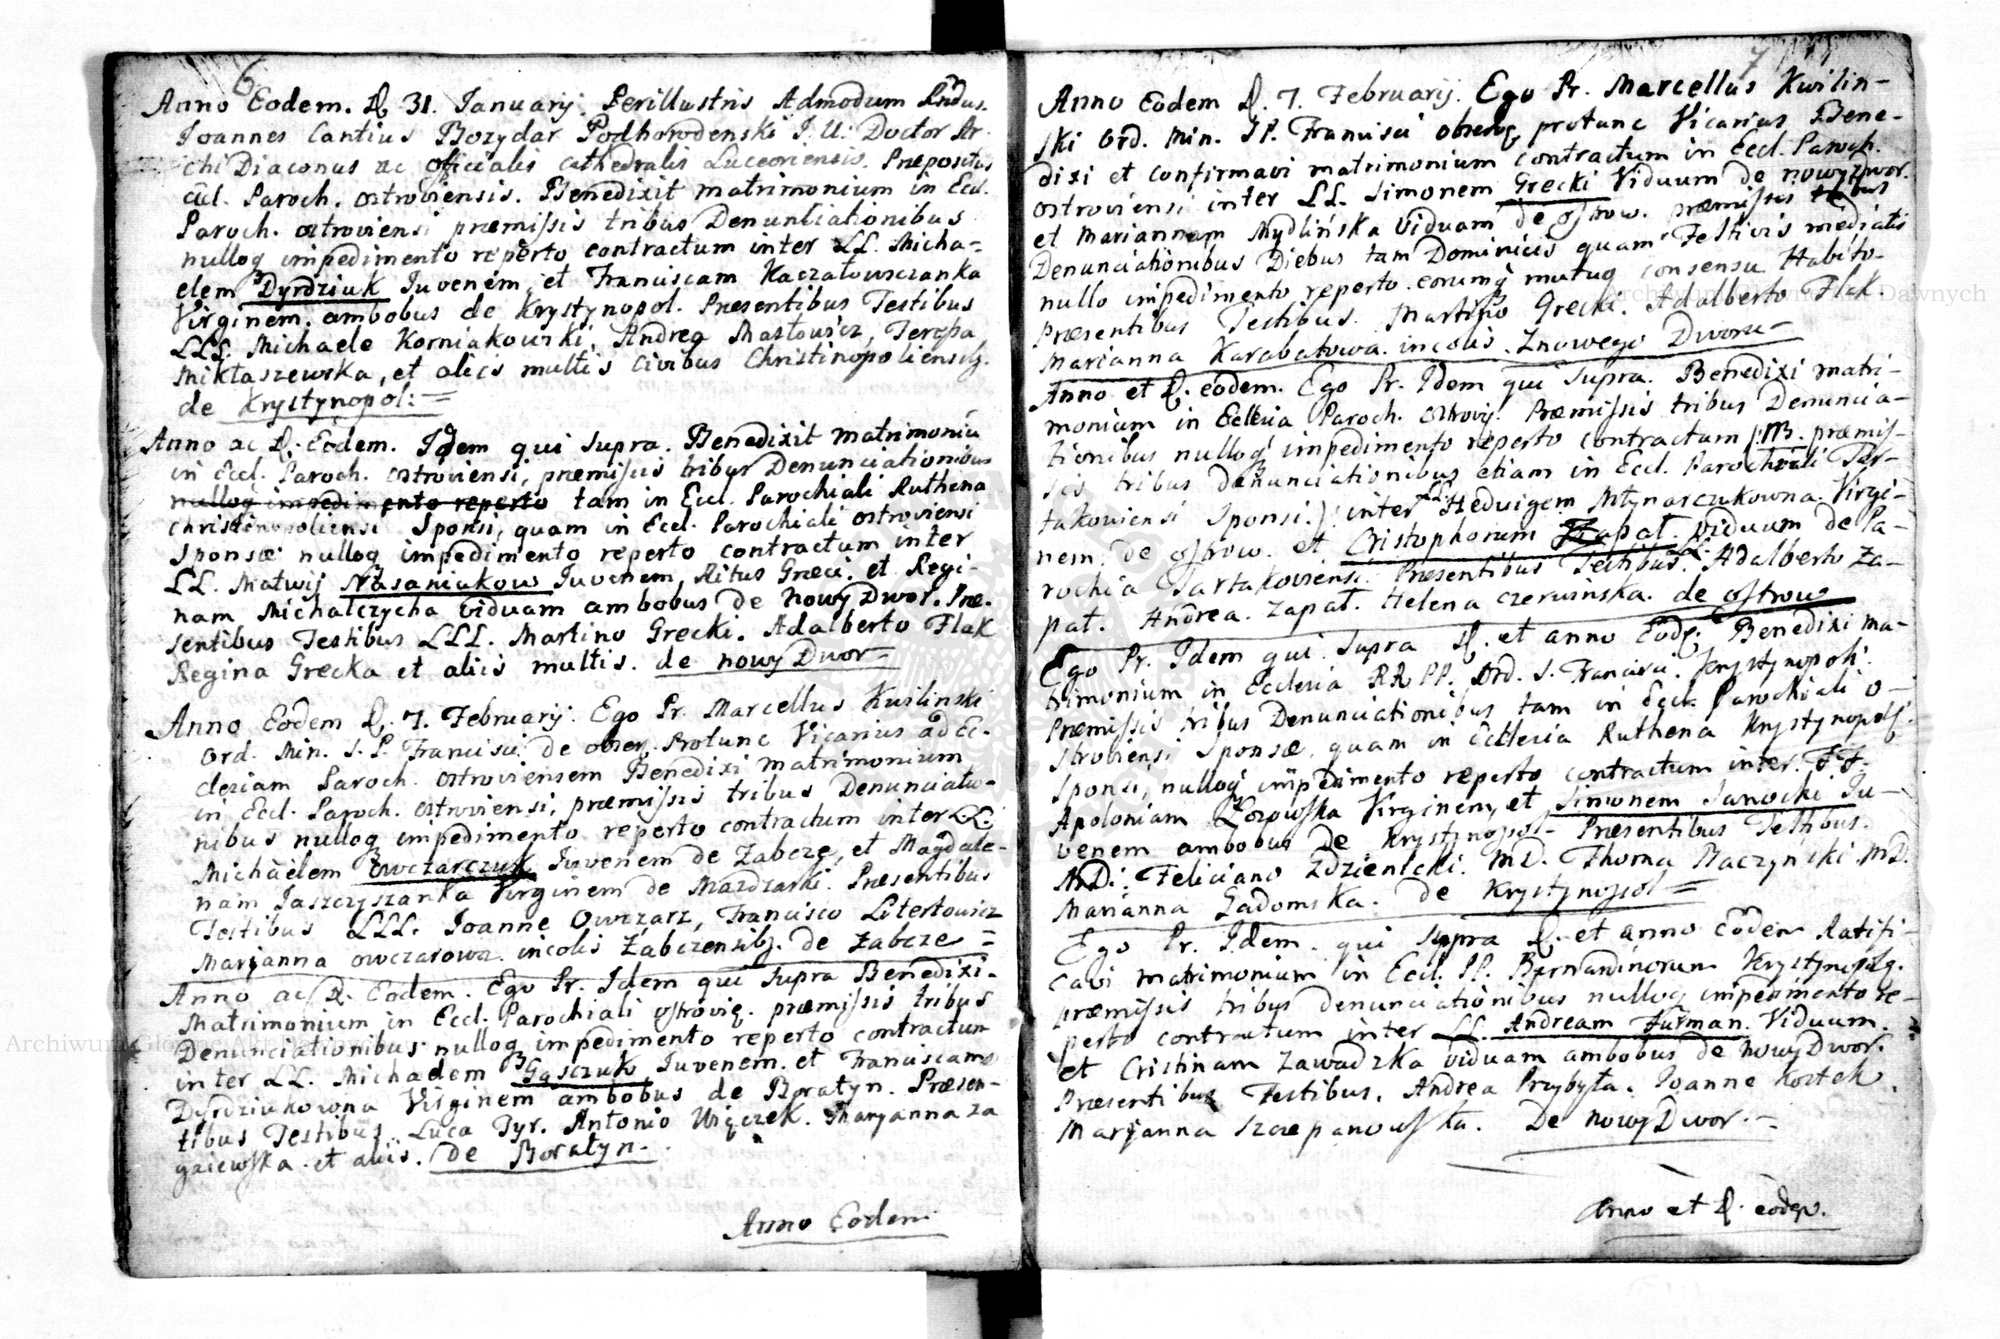 6
Anno Eodem. D. 31. Januarij. Perillustris Admodum Rndus.
Joannes Cantius Bozydar Podhorodenski J. U. Doctor Ar-
chi Diaconus ac officialis Cathedralis Luceoriensis. Præpositus
Paroch. ostroviensis. Benedixit matrimonium in Eccl.
Paroch. ostroviensi præmissis tribus Denuntiationibus
nulloq impedimento reperto contractum inter LL. Micha-
elem Dyrdziuk Juvenem, et Franciscam Kaczałowszczanka
Virginem, ambobus de Krystynopol. Præsentibus Testibus
LLL. Michaele Korniakowski, Andrea Masłowicz, Teressa
Mikłaszewska, et aliis multis Civibus Christinopoliensib.
de Krystynopol: =
Anno ac D. Eodem. Idem qui supra. Benedixit matrimoniu
in Eccl. Paroch. ostroviensi, præmissis tribus Denunciationibus
nulloq impedimento reperto tam in Eccl. Parochiali Ruthena
Christinopoliensi Sponsi, quam in Eccl. Parochiali ostroviensi
Sponsæ nulloq impedimento reperto contractum inter
LL. Matwij Nasaniukow Juvenem, Ritus Græci. et Regi-
nam Michalczycha Viduam ambobus de Nowy Dwor. Præ-
sentibus Testibus LLL. Martino Grecki. Adalberto Flak
Regina Grecka et aliis multis. de nowy Dwor =
Anno Eodem D. 7. Februarij. Ego Fr. Marcellus Kwilinski
Ord. Min. S. P. Francisci de obser. Protunc Vicarius ad Ec-
clesiam Paroch. ostroviensem Benedixi matrimonium
in Eccl. Paroch. ostroviensi, præmissis tribus Denunciatio-
nibus nulloq impedimento reperto contractum inter LL.
Michäelem Owczarczuk Juvenem de Zabcze, et Magdale-
nam Jaszczyszanka Virginem de Mazdzarki. Præsentibus
Testibus LLL. Joanne Owczarz, Francisco Litertowicz
Marjanna owczarowa. incolis Zabczensib. de Zabcze =
Anno ac D. Eodem. Ego Fr. Idem qui supra Benedixi.
Matrimonium in Eccl. Parochiali ostrovie. præmissis tribus
Denunciationibus nulloq impedimento reperto contractum
inter LL. Michaelem Gąsczuk Juvenem et Franciscam
Dyrdziukowna Virginem ambobus de Boratyn. Præsen-
tibus Testibus. Luca Tyr. Antonio Wiączek. Maryanna Za
gaiewska et aliis. de Boratyn.
Anno Eodem
7
Anno Eodem D. 7. Februarij. Ego Fr. Marcellus Kwilin-
ski Ord. Min. SP. Francisci obserq protunc Vicarius Bene-
dixi et confirmavi matrimonium contractum in Eccl. Paroch.
ostroviensi inter LL. Simonem Grecki Viduum de nowy Dwor.
et Mariannam Mydlińska Viduam de ostrow. præmissis tribus
Denunciationibus Diebus tam Dominicis quam Festivis mediatis
nullo impedimento reperto eorumq mutuo consensu Habito.
Præsentibus Testibus. Martino Grecki. Adalberto Flak
Marianna Karabatowa. incolis. Znowego Dworu -
Anno et D. eodem. Ego Fr. Idem qui supra. Benedixi matri-
monium in Ecclesia Paroch. Ostrovij. Præmissis tribus Denuncia-
tionibus nulloq impedimento reperto contractum /: NB. præmis-
sis tribus denunciationibus etiam in Eccl. Parochiali Tar-
takoviensi Sponsi. :/ inter LL. Hedvigem Młynarczukowna. Virgi-
nem. de ostrow. et Cristophorum Zapał. Viduum de Pa-
rochia Tartakoviensi. Præsentibus Testibus. Adalberto Za-
pał. Andrea. Zapał. Helena Czerwinska. de ostrow
Ego Fr. Idem qui supra D. et anno Eodē. Benedixi ma-
trimonium in Ecclesia RR PP. Ord. S. Francisci. Krystynopoli.
Præmissis tribus Denunciationibus tam in Eccl. Parochiali o-
stroviensi Sponsæ, quam in Ecclesia Ruthena Krystynopoli.
Sponsi, nulloq impedimento reperto contractum inter.
Apoloniam Virginem, et Simonem Sanocki Ju-
venem ambobus de Krystynopol - Præsentibus Testibus.
Feliciano Zdzienicki. MD. Thoma Baczyński. MD.
Marianna Gadomska. de Krystynopol =
Ego Fr. Idem. qui supra D. et anno Eodem Ratifi-
cavi matrimonium in Eccl. PP. Bernardinorum Krystynopolq.
præmissis tribus denunciationibus nulloq impedimento re-
perto contractum inter LL. Andream Furman. Viduum.
et Cristinam Zawadzka viduam ambobus de Nowy Dwor.
Præsentibus Testibus. Andrea Przybyła. Joanne Kostek.
Marjanna Szczepanowska. De Nowy Dwor. =
Anno et D. eodem.
Archiwum Główne Akt Dawnych
Archiwum Główne Akt Dawnych